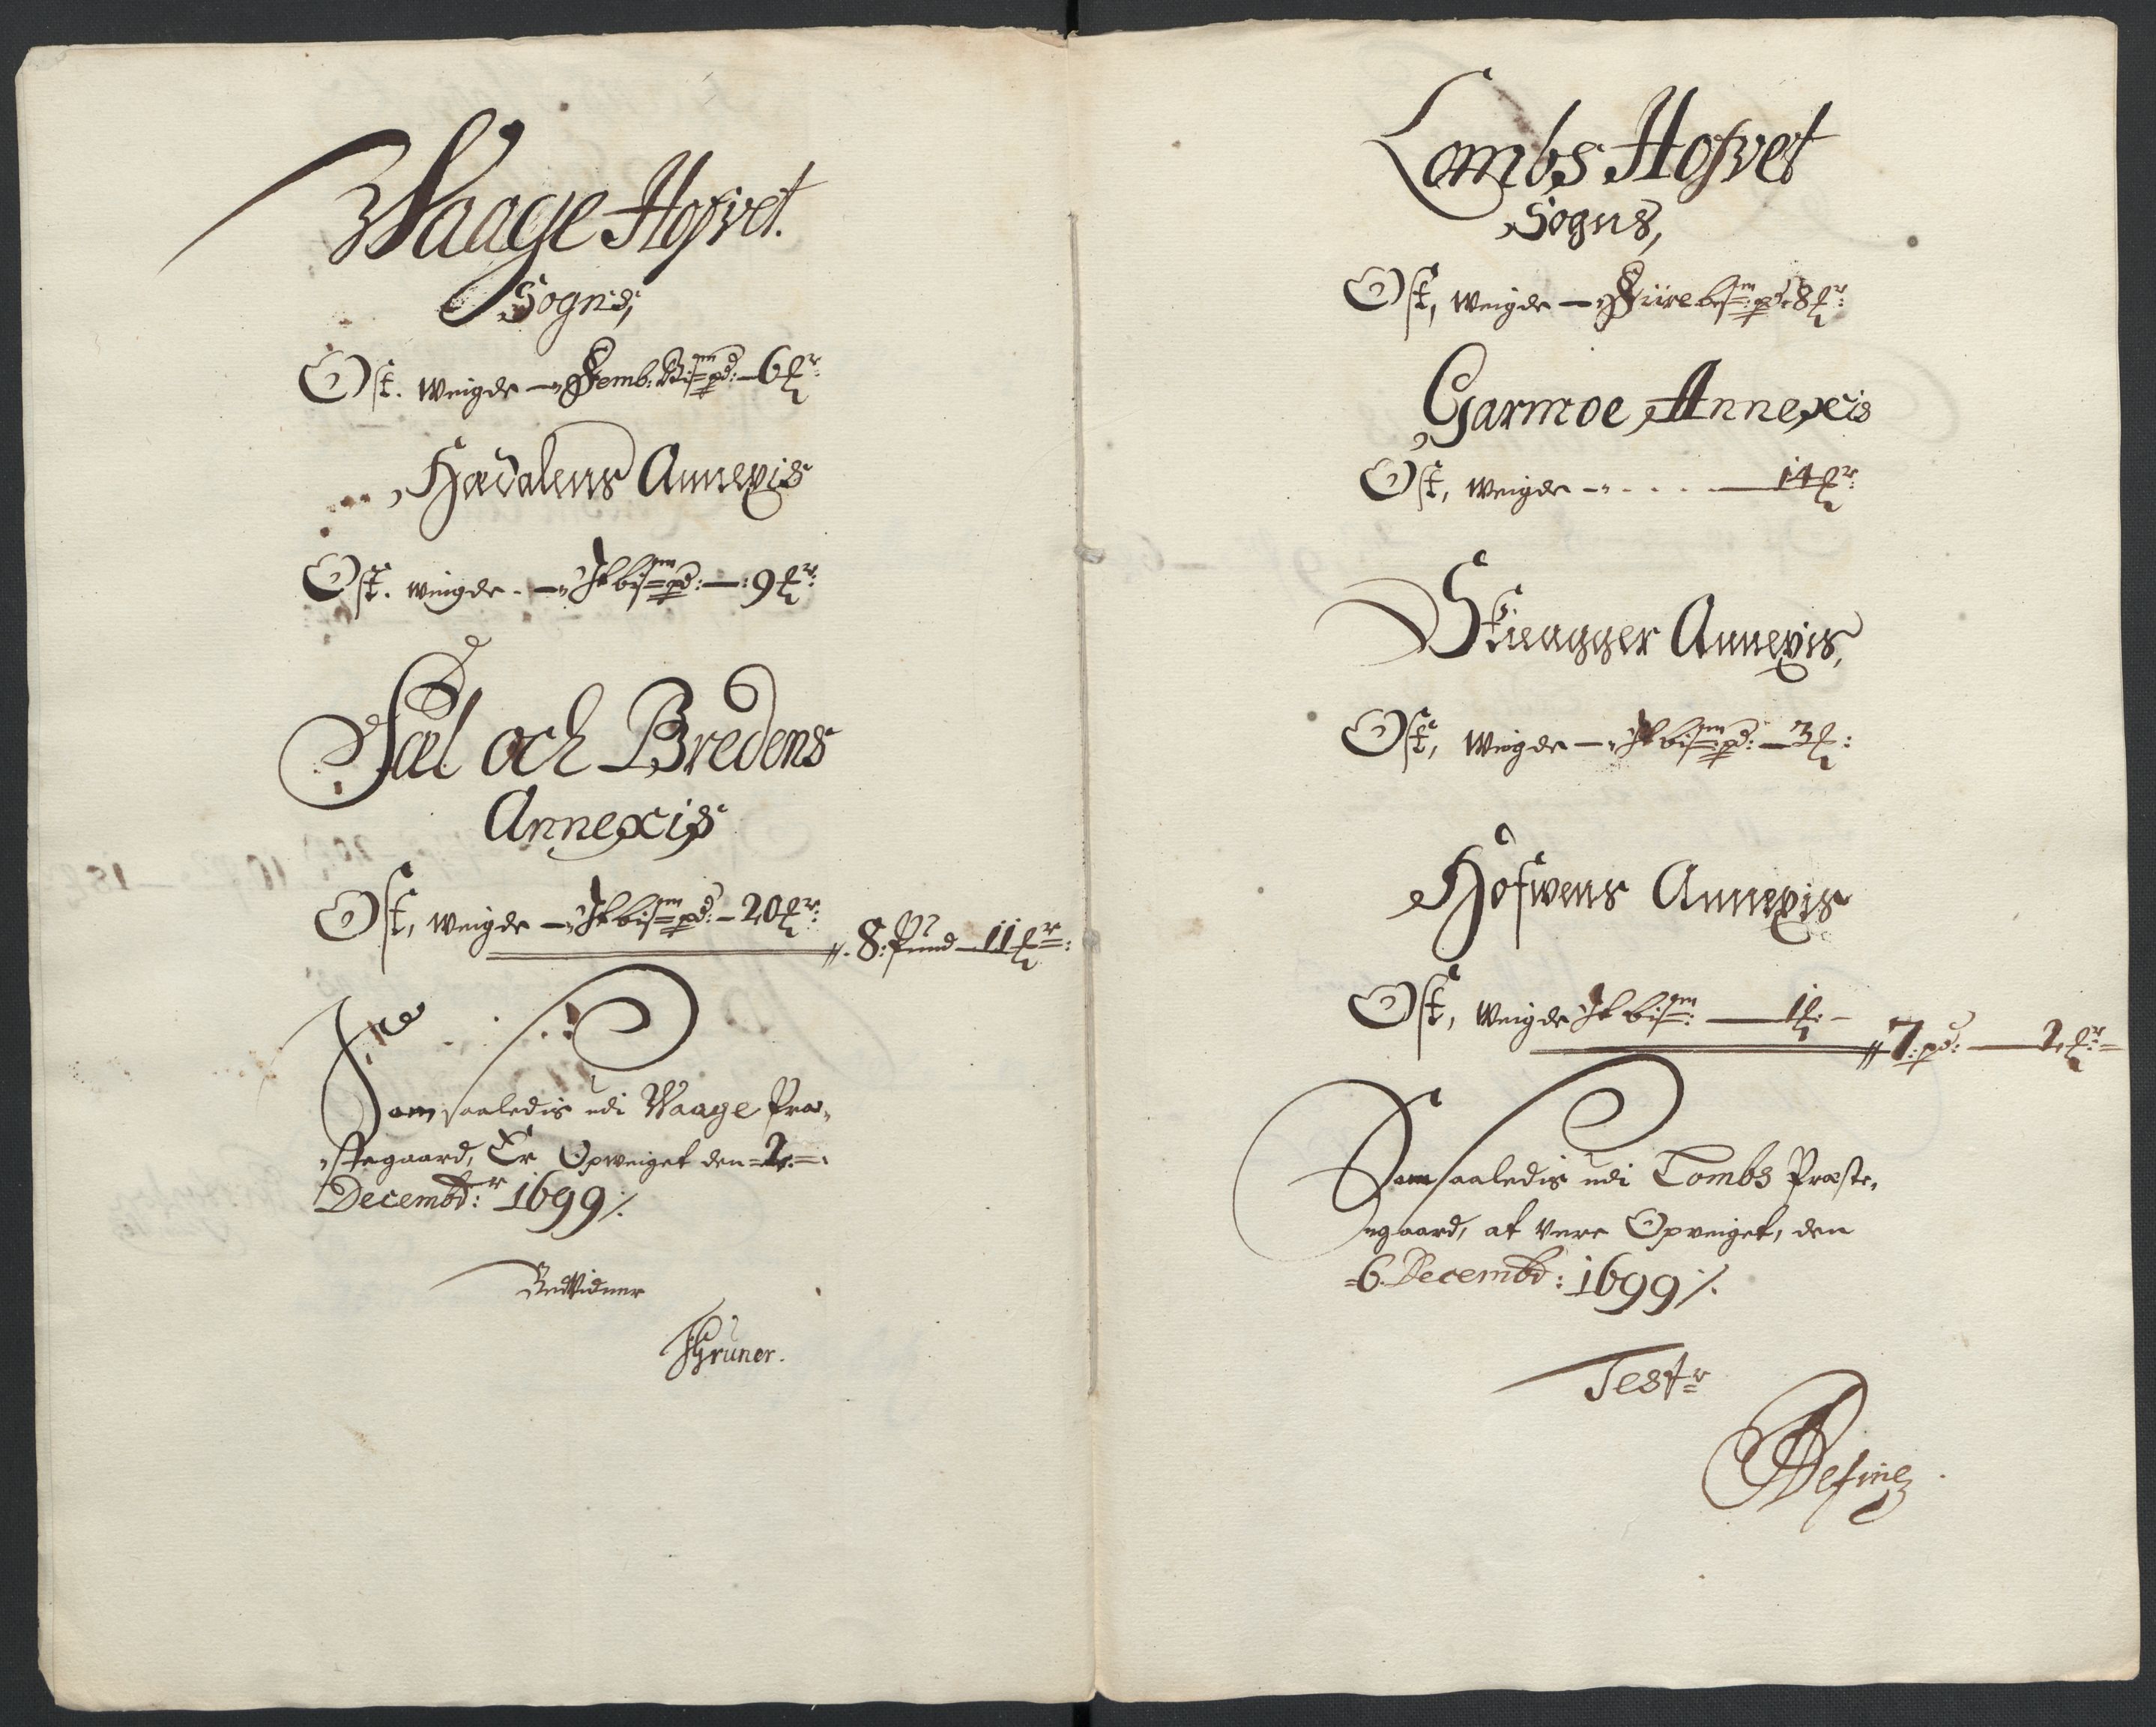 Waage Hofvet.
Sogns,
Ost. weigde — Femb: Bismpd: — 6 ℔r:
Hædalens Annexis
Ost. weigde — It bismpd: — 9 ℔r:
Sæl och Bredens
Annexis
Ost, weigde — It bismpd: — 20 ℔r:
8: Pund — 11 ℔r:
Som saaledis udi Waage Præ-
stegaard, Er Opweiget den 2
Decembr: 1699
Gruner.
Lombs Hofvet
Sogns,
Ost, weigde — Fiire bismpd: 8 ℔r:
Garmoe Annexis
Ost, weigde — 14 ℔r:
Skieagger Annexis,
Ost, weigde — It bismpd: — 3 ℔:
Höfwens Annexis
Ost, weigde It bism: — 1 ℔: —
7: pd: — 2 ℔r:
Som saaledis udi Lombs Præste-
gaard, at vere Opveiget, den
6 Decembr: 1699
Testr